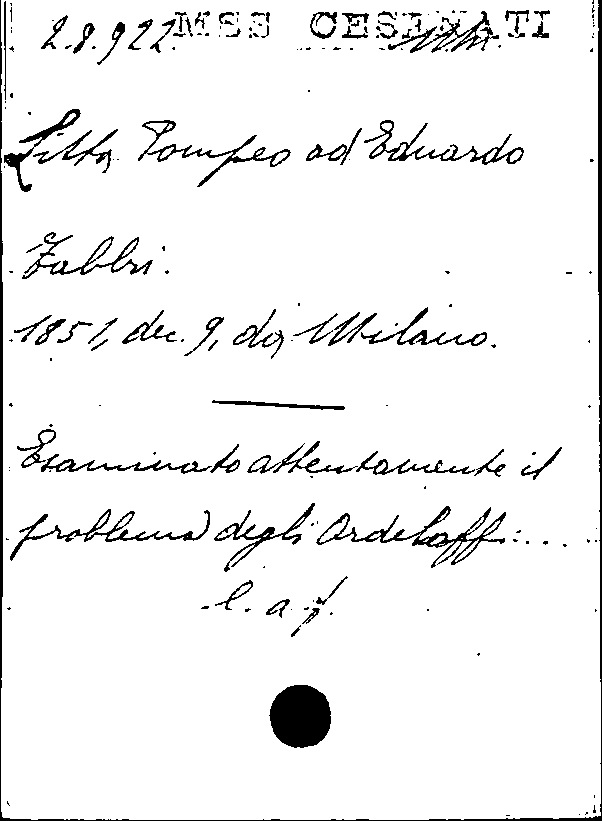 MSS CESENATI
2.8.922
Litta, Pompeo ad Eduardo
Fabbri.
1851, dec. 9, da, Milano.
Esaminato attentamente il
problema degli Ordelaffi:...
l. a. f.